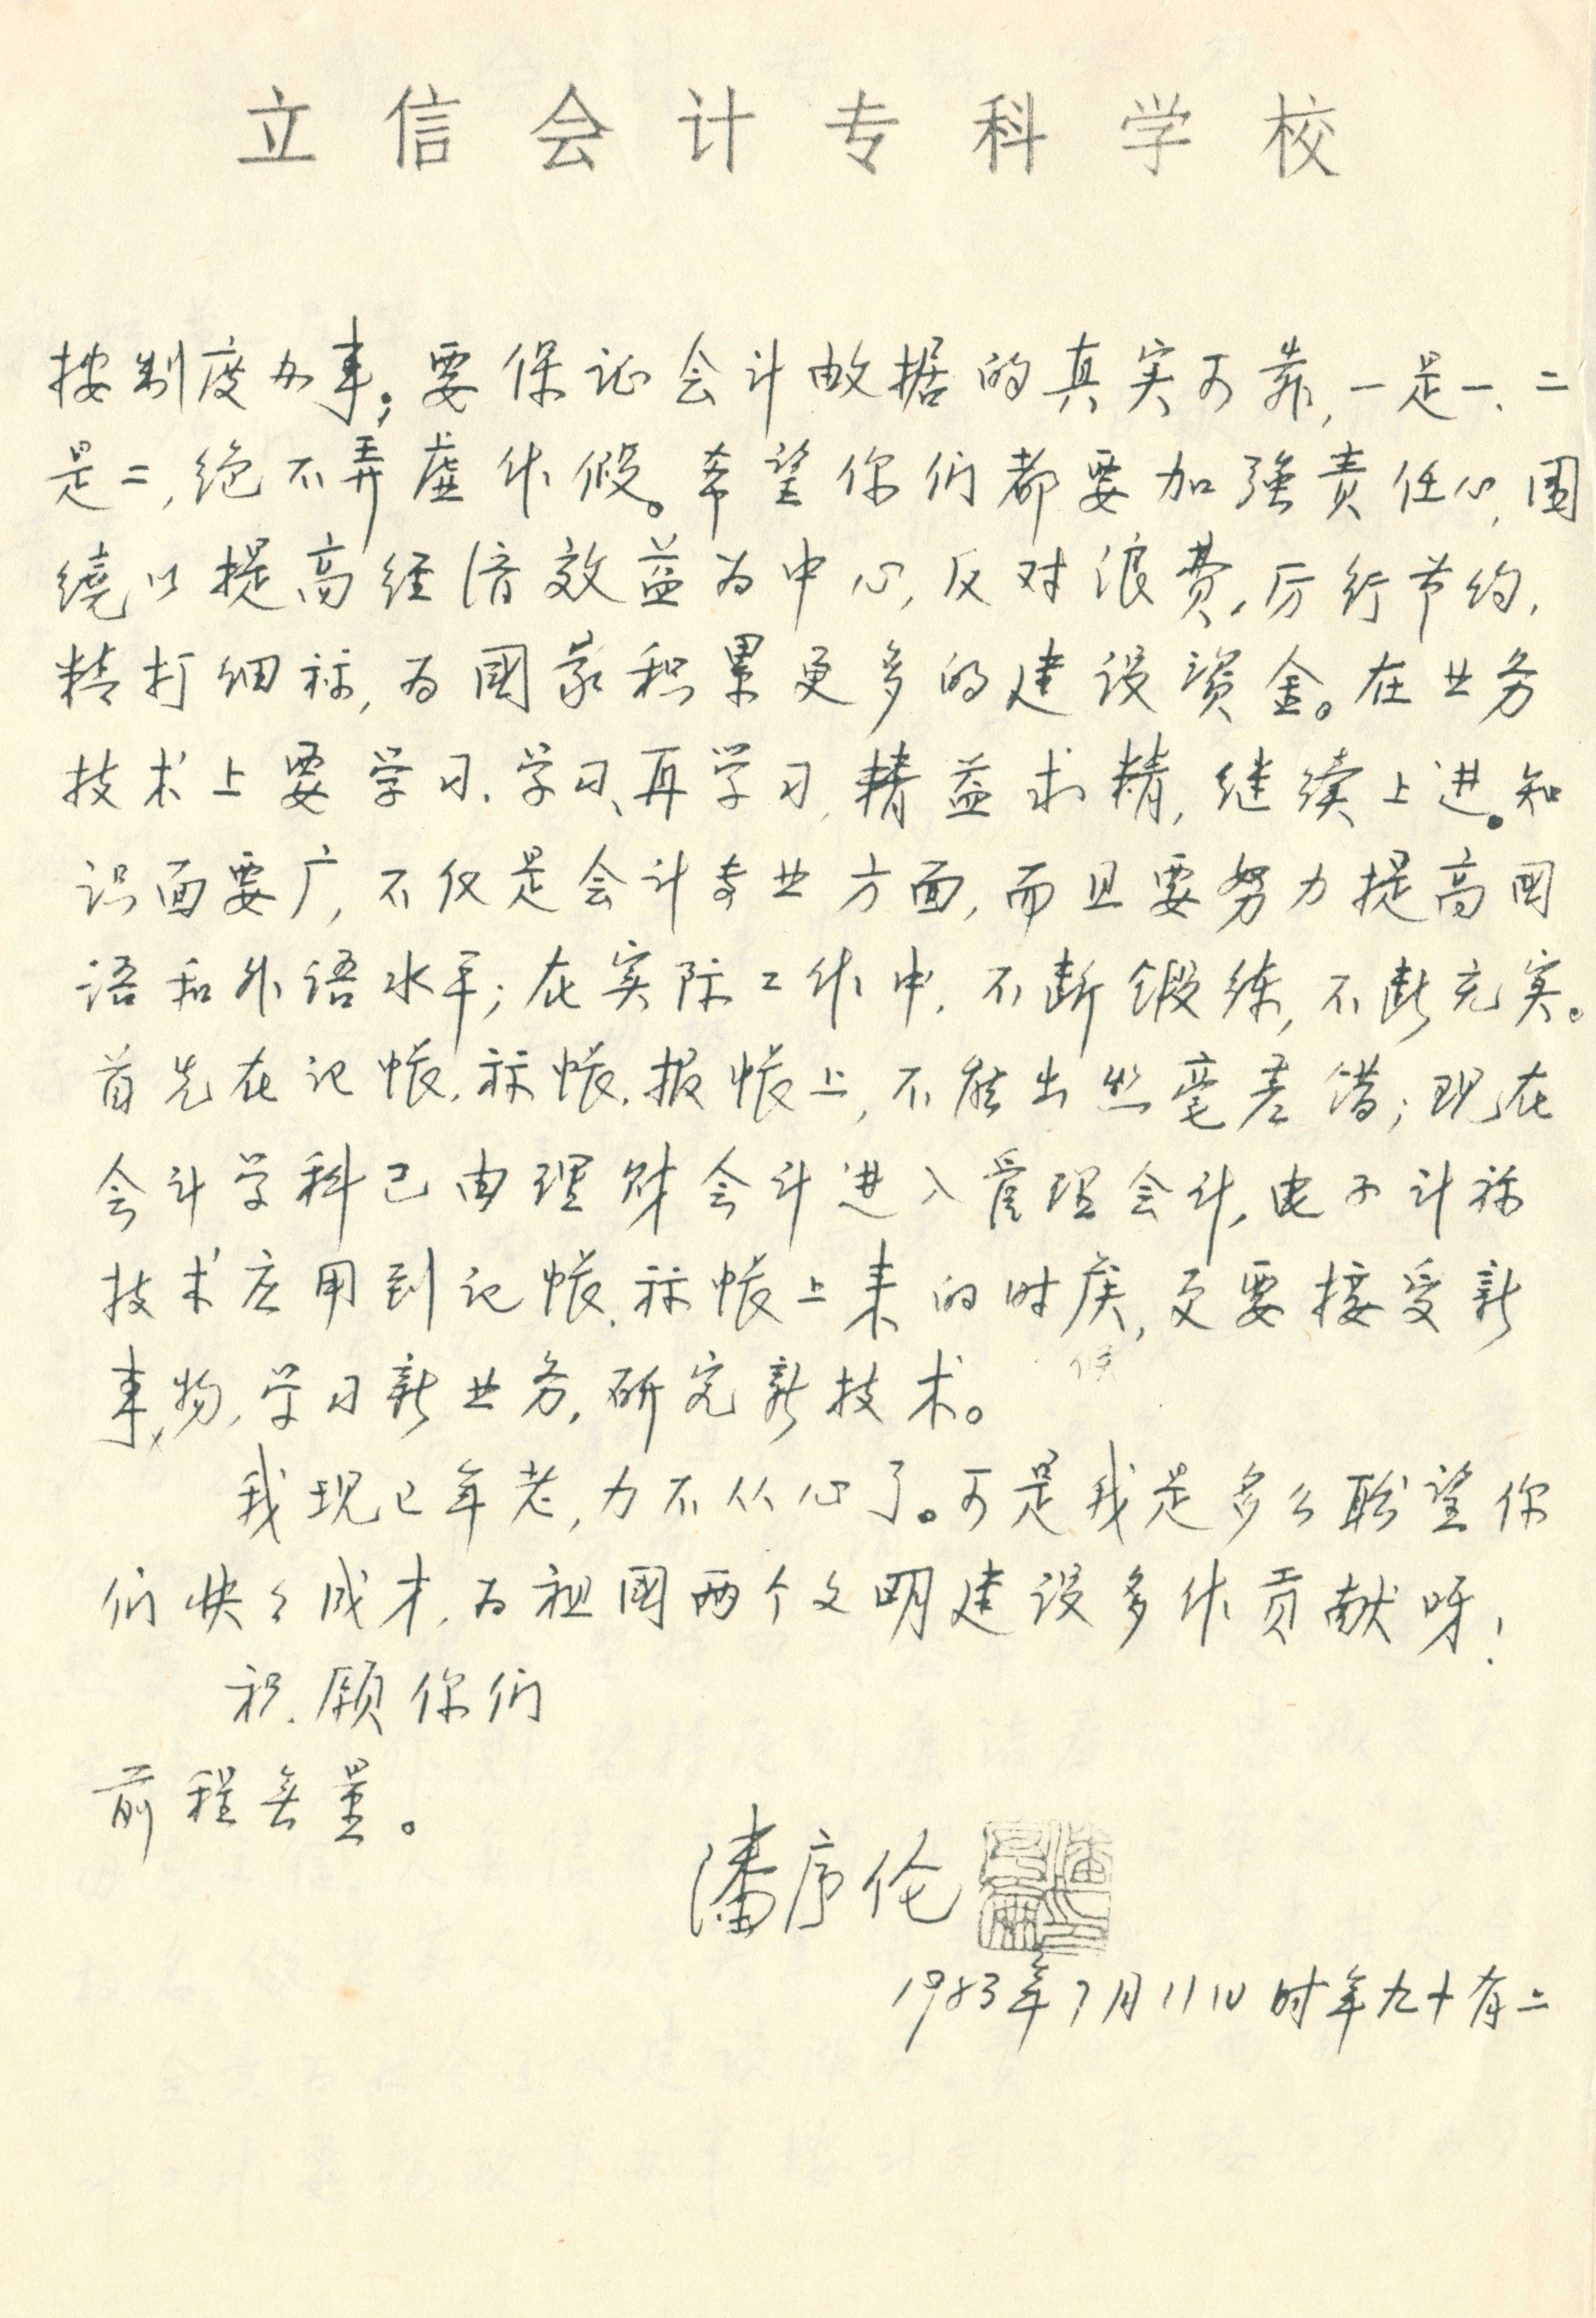 立信会计专科学校
按制度办事；要保证会计数据的真实可靠，一是一、二
是二，绝不弄虚作假。希望你们都要加强责任心，围
绕以提高经济效益为中心，反对浪费，厉行节约，
精打细祘，为國家积累更多的建设资金。在业务
技术上要学习、学习、再学习，精益求精，继续上进。知
识面要广，不仅是会计专业方面，而且要努力提高国
语和外语水平；在实际工作中，不断锻练，不断充实。
首先在记帐、祘帐、报帐上，不能出丝毫差错；现在
会计学科已由理财会计进入管理会计，电子计祘
技术应用到记帐、祘帐上来的时候，更要接受新
候
事物，学习新业务，研究新技术。
我现已年老，力不从心了。可是我是多么盼望你
们快々成才，为祖國两个文明建设多作贡献呀！
祝愿你们
前程無量。
潘序伦
1983年7月11日时年九十有二